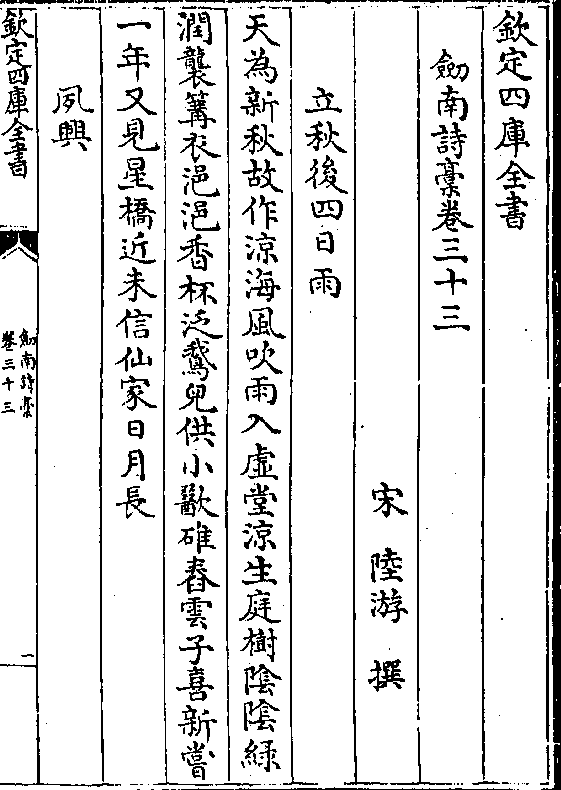 欽定四庫全書
劒南詩槀卷三十三
宋 陸游 撰
立秋後四日雨
天為新秋故作涼海風吹雨入虛堂涼生庭樹陰陰緑
潤襲篝衣浥浥香杯泛鵞兒供小歠碓舂雲子喜新嘗
一年又見星橋近未信仙家日月長
夙興
欽定四庫全書
劒南詩槀
卷三十三
一